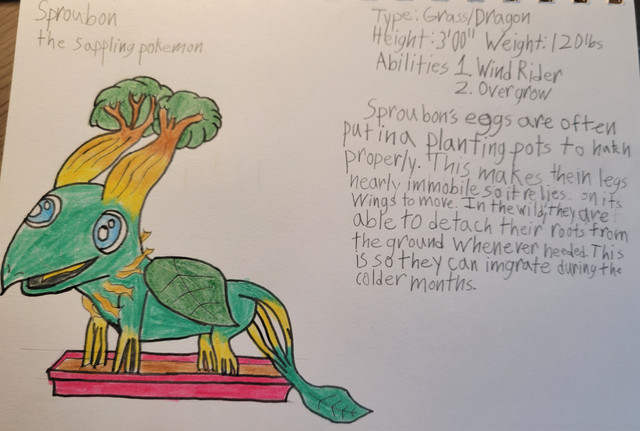 Sproubon
the sappling pokemon
Type: Grass/Dragon
Height: 3'00" Weight: 120lbs
Abilities 1. Wind Rider
2. Overgrow
Sproubon's eggs are often
put in a planting pots to hatch
properly. This makes their legs
nearly immobile so it relies on its
wings to move. In the wild, they are
able to detach their roots from
the ground whenever needed. This
is so they can imgrate during the
colder months.